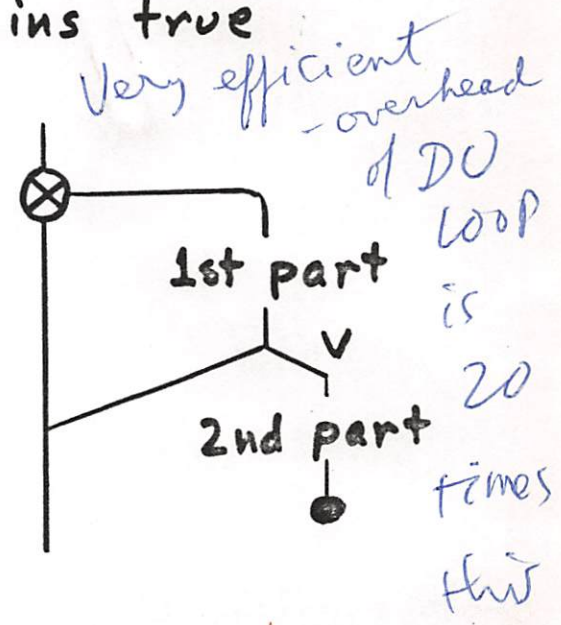 ins true
Very efficient
-overhead
of DO
LOOP
is
20
times
this
1st part
V
2nd part